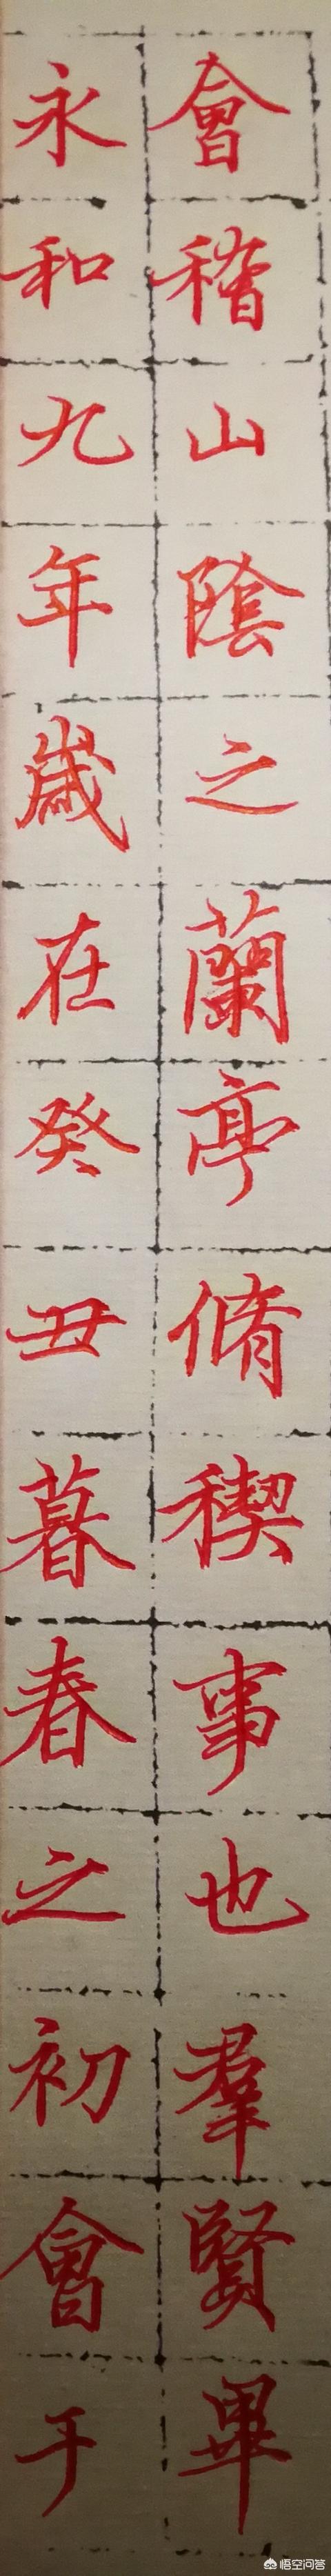 永和九年歲在癸丑暮春之初會于
會稽山陰之蘭亭脩稧事也羣賢畢
悟空问答